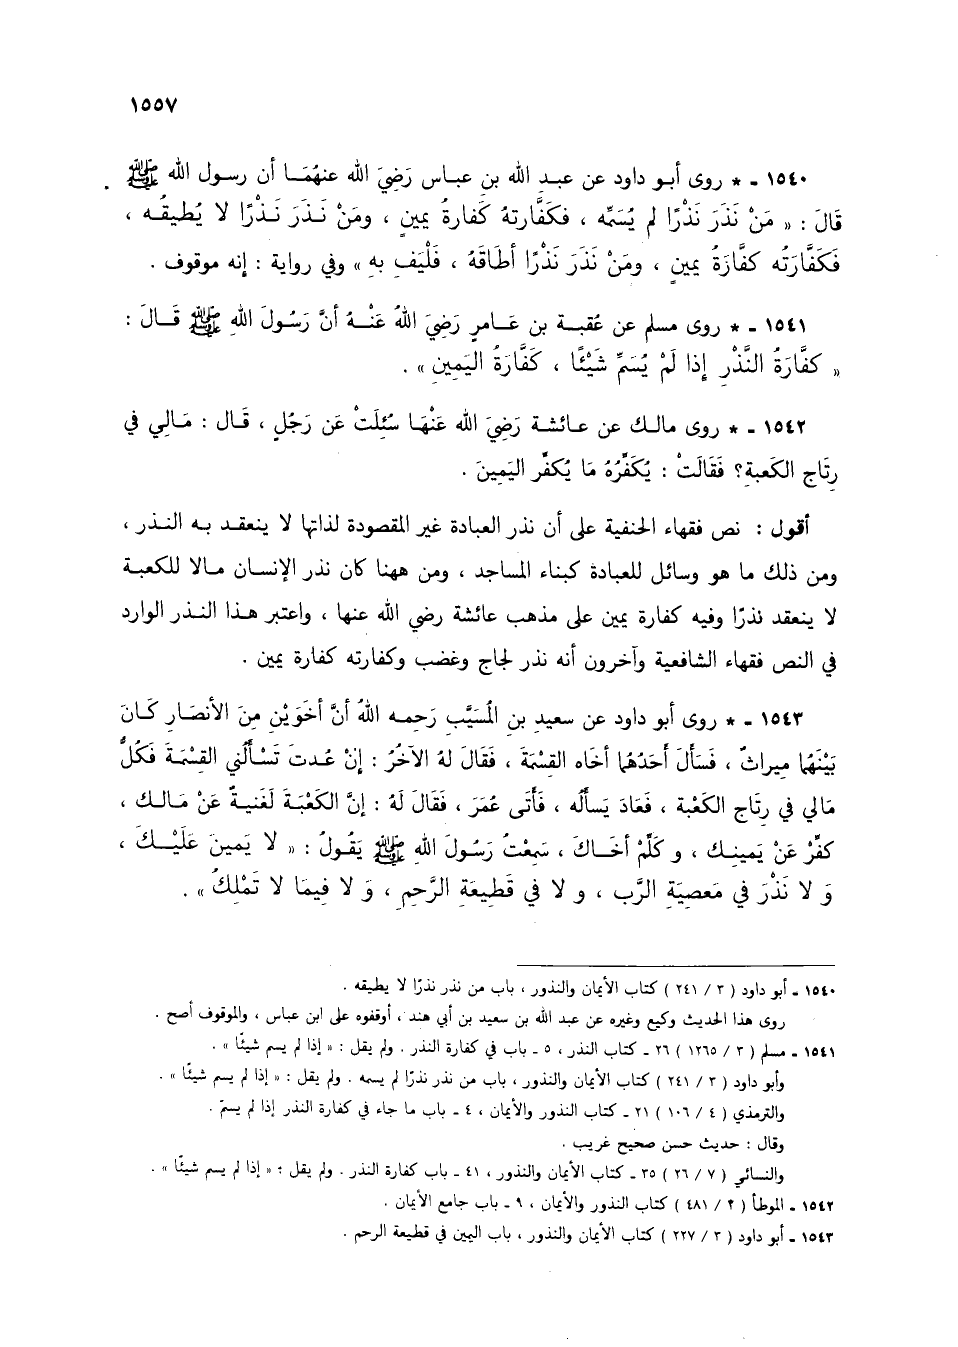 ١٥٥٧
١٥٤٠ - * روى أبو داود عن عبد الله بن عباس رَضِيَ الله عنهُمَا أن رسول الله ﷺ
قَالَ : « مَنْ نَذَرَ نَذْرًا لم يُسَمِّه ، فكَفَّارتهُ كَفارةُ يمينٍ ، ومَنْ نَذَرَ نَذْرًا لا يُطيقُه ،
فَكَفَّارَتُه كفَّارَةُ يمينٍ ، ومَنْ نَذَرَ نَذْرًا أطَاقَهُ ، فَلْيَفِ بِهِ » وفي رواية : إنه موقوف .
١٥٤١ - * روى مسلم عن عُقبة بن عَامرٍ رَضِيَ اللهُ عَنْهُ أنَّ رَسُولَ اللهِ ﷺ قَالَ :
« كفَّارَةُ النَّذْرِ إذا لَمْ يُسَمِّ شَيْئًا ، كَفَّارَةُ اليَمِينِ » .
١٥٤٢ - * روى مالك عن عائشة رَضِيَ الله عَنْهَا سُئِلَتْ عَن رَجُلٍ ، قَال : مَالِي في
رِتَاجِ الكَعبةِ؟ فَقَالَتْ : يُكَفِّرُهُ مَا يُكفِّر اليَمِينَ .
أقول : نص فقهاء الحنفية على أن نذر العبادة غير المقصودة لذاتها لا ينعقد به النذر ،
ومن ذلك ما هو وسائل للعبادة كبناء المساجد ، ومن ههنا كان نذر الإنسان مالا للكعبة
لا ينعقد نذرًا وفيه كفارة يمين على مذهب عائشة رضي الله عنها ، واعتبر هذا النذر الوارد
في النص فقهاء الشافعية وآخرون أنه نذر لجاج وغضب وكفارته كفارة يمين .
١٥٤٣ - * روى أبو داود عن سعيدِ بنِ المُسَيَّبِ رَحِمه اللهُ أنَّ أخَوَيْنِ مِنَ الأنصَارِ كَانَ
بَيْنَهُما مِيراثٌ ، فَسأَلَ أحَدُهُما أخَاه القِسْمَةَ ، فَقَالَ لَهُ الآخرُ : إنْ عُدتَ تَسْأَلُني القِسْمَةَ فَكُلُّ
مَالي في رِتَاجِ الكَعْبة ، فَعَادَ يَسأَلُه ، فَأَتى عُمَرَ ، فَقَالَ لَهُ : إنَّ الكَعْبَةَ لَغَنيةٌ عَنْ مَالك ،
كفِّرْ عَنْ يَمينِك ، و كَلِّمْ أخَاكَ ، سَمِعْتُ رَسُولَ اللهِ ﷺ يَقُولُ : « لا يَمينَ عَلَيْكَ ،
وَ لا نَذْرَ في مَعصِيَةِ الرَّب ، و لا في قَطِيعَةِ الرَّحِمِ ، وَ لا فِيمَا لا تَمْلِكُ » .
١٥٤٠ - أبو داود ( ٣ / ٢٤١ ) كتاب الأيمان والنذور ، باب من نذر نذرًا لا يطيقه .
روى هذا الحديث وكيع وغيره عن عبد الله بن سعيد بن أبي هند ، أوقفوه على ابن عباس ، والموقوف أصح .
١٥٤١ - مسلم ( ٣ / ١٢٦٥ ) ٢٦ - كتاب النذر ، ٥ - باب في كفارة النذر . ولم يقل : « إذا لم يسم شيئًا » .
وأبو داود ( ٣ / ٢٤١ ) كتاب الأيمان والنذور ، باب من نذر نذرًا لم يسمه . ولم يقل : « إذا لم يسم شيئًا » .
والترمذي ( ٤ / ١٠٦ ) ٢١ - كتاب النذور والأيمان ، ٤ - باب ما جاء في كفارة النذر إذا لم يسمّ .
وقال : حديث حسن صحيح غريب .
والنسائي ( ٧ / ٢٦ ) ٣٥ - كتاب الأيمان والنذور ، ٤١ - باب كفارة النذر . ولم يقل : « إذا لم يسم شيئًا » .
١٥٤٢ - الموطأ ( ٢ / ٤٨١ ) كتاب النذور والأيمان ، ٩ - باب جامع الأيمان .
١٥٤٣ - أبو داود ( ٣ / ٢٢٧ ) كتاب الأيمان والنذور ، باب اليمين في قطيعة الرحم .